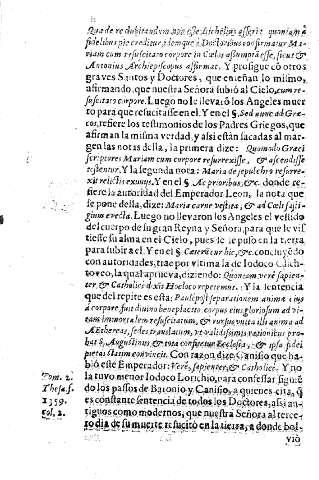 Qua de re dubitandum non esse Michelius asserit quoniam à
fidelibus piè creditur; idemque à Doctoribus confirmatur Ma-
riam cum resuscitato corpore in Cœlos assumptã esse, sicut &
Antonius Archiepiscopus affirmat. Y prosigue cõ otros
graves Santos y Doctores, que enseñan lo mismo,
afirmando, que nuestra Señora subiò al Cielo, cum re-
suscitato corpore. Luego no le llevarõ los Angeles muer
to para que resucitasse en el. Y en el §. Sed nunc ad Græ-
cos, refiere los testimonios de los Padres Griegos, que
afirman la misma verdad, y assi estàn sacadas al mar-
gen las notas della, la primera dize: Quomodo Græci
scriptores Mariam cum corpore resurrexisse, & ascendisse
testentur. Y la segunda nota: Maria de sepulchro resurre-
xit relictis exuvijs. Y en el §. Ac prioribus, &c. donde re-
fiere la autoridad del Emperador Leon, la nota que
se pone della, dize: Maria carne vestita, & ad Cœli fasti-
gium erecta. Luego no llevaron los Angeles el vestido
del cuerpo de su gran Reyna y Señora, para que le vis
tiesse su alma en el Cielo, pues le lo puso en la tierra
para subir a el. Y en el §. Cæterùm hic, &c. concluyẽdo
con autoridades, trae por vltima la de Iodoco Clich-
toveo, la qual aprueva, diziendo: Quoniam verè sapien-
ter, & Catholicè dixit Iodoco repetemus. Y la sentencia
que del repite es esta: Paulò pòst separationem animæ eius
à corpore, fuit divino beneplacito corpus eius gloriosum ad vi-
tam immortalem resuscitatum, & rursus vnita illi anima ad
Æthereas, sedes translatum, vt validissimis rationibus pro-
bat S. Augustinus, & tota consentit Ecclesia, & ipsa fidei
pietas statim convincit. Con razon dize Canisio que ha-
blò este Emperador: Verè, sapienter, & Catholicè. Y no
Tom. 2. la tuvo menor Iodoco Lorichio, para confessar siguiẽ
Thesa. f. do los passos de Baronio y Canisio, a quienes cita, q̃
1359. es constante sentencia de todos los Doctores, assi an-
col. 2. tiguos como modernos, que nuestra Señora al terce-
ro dia de su muerte resucitò en la tierra, a donde bol-
viò